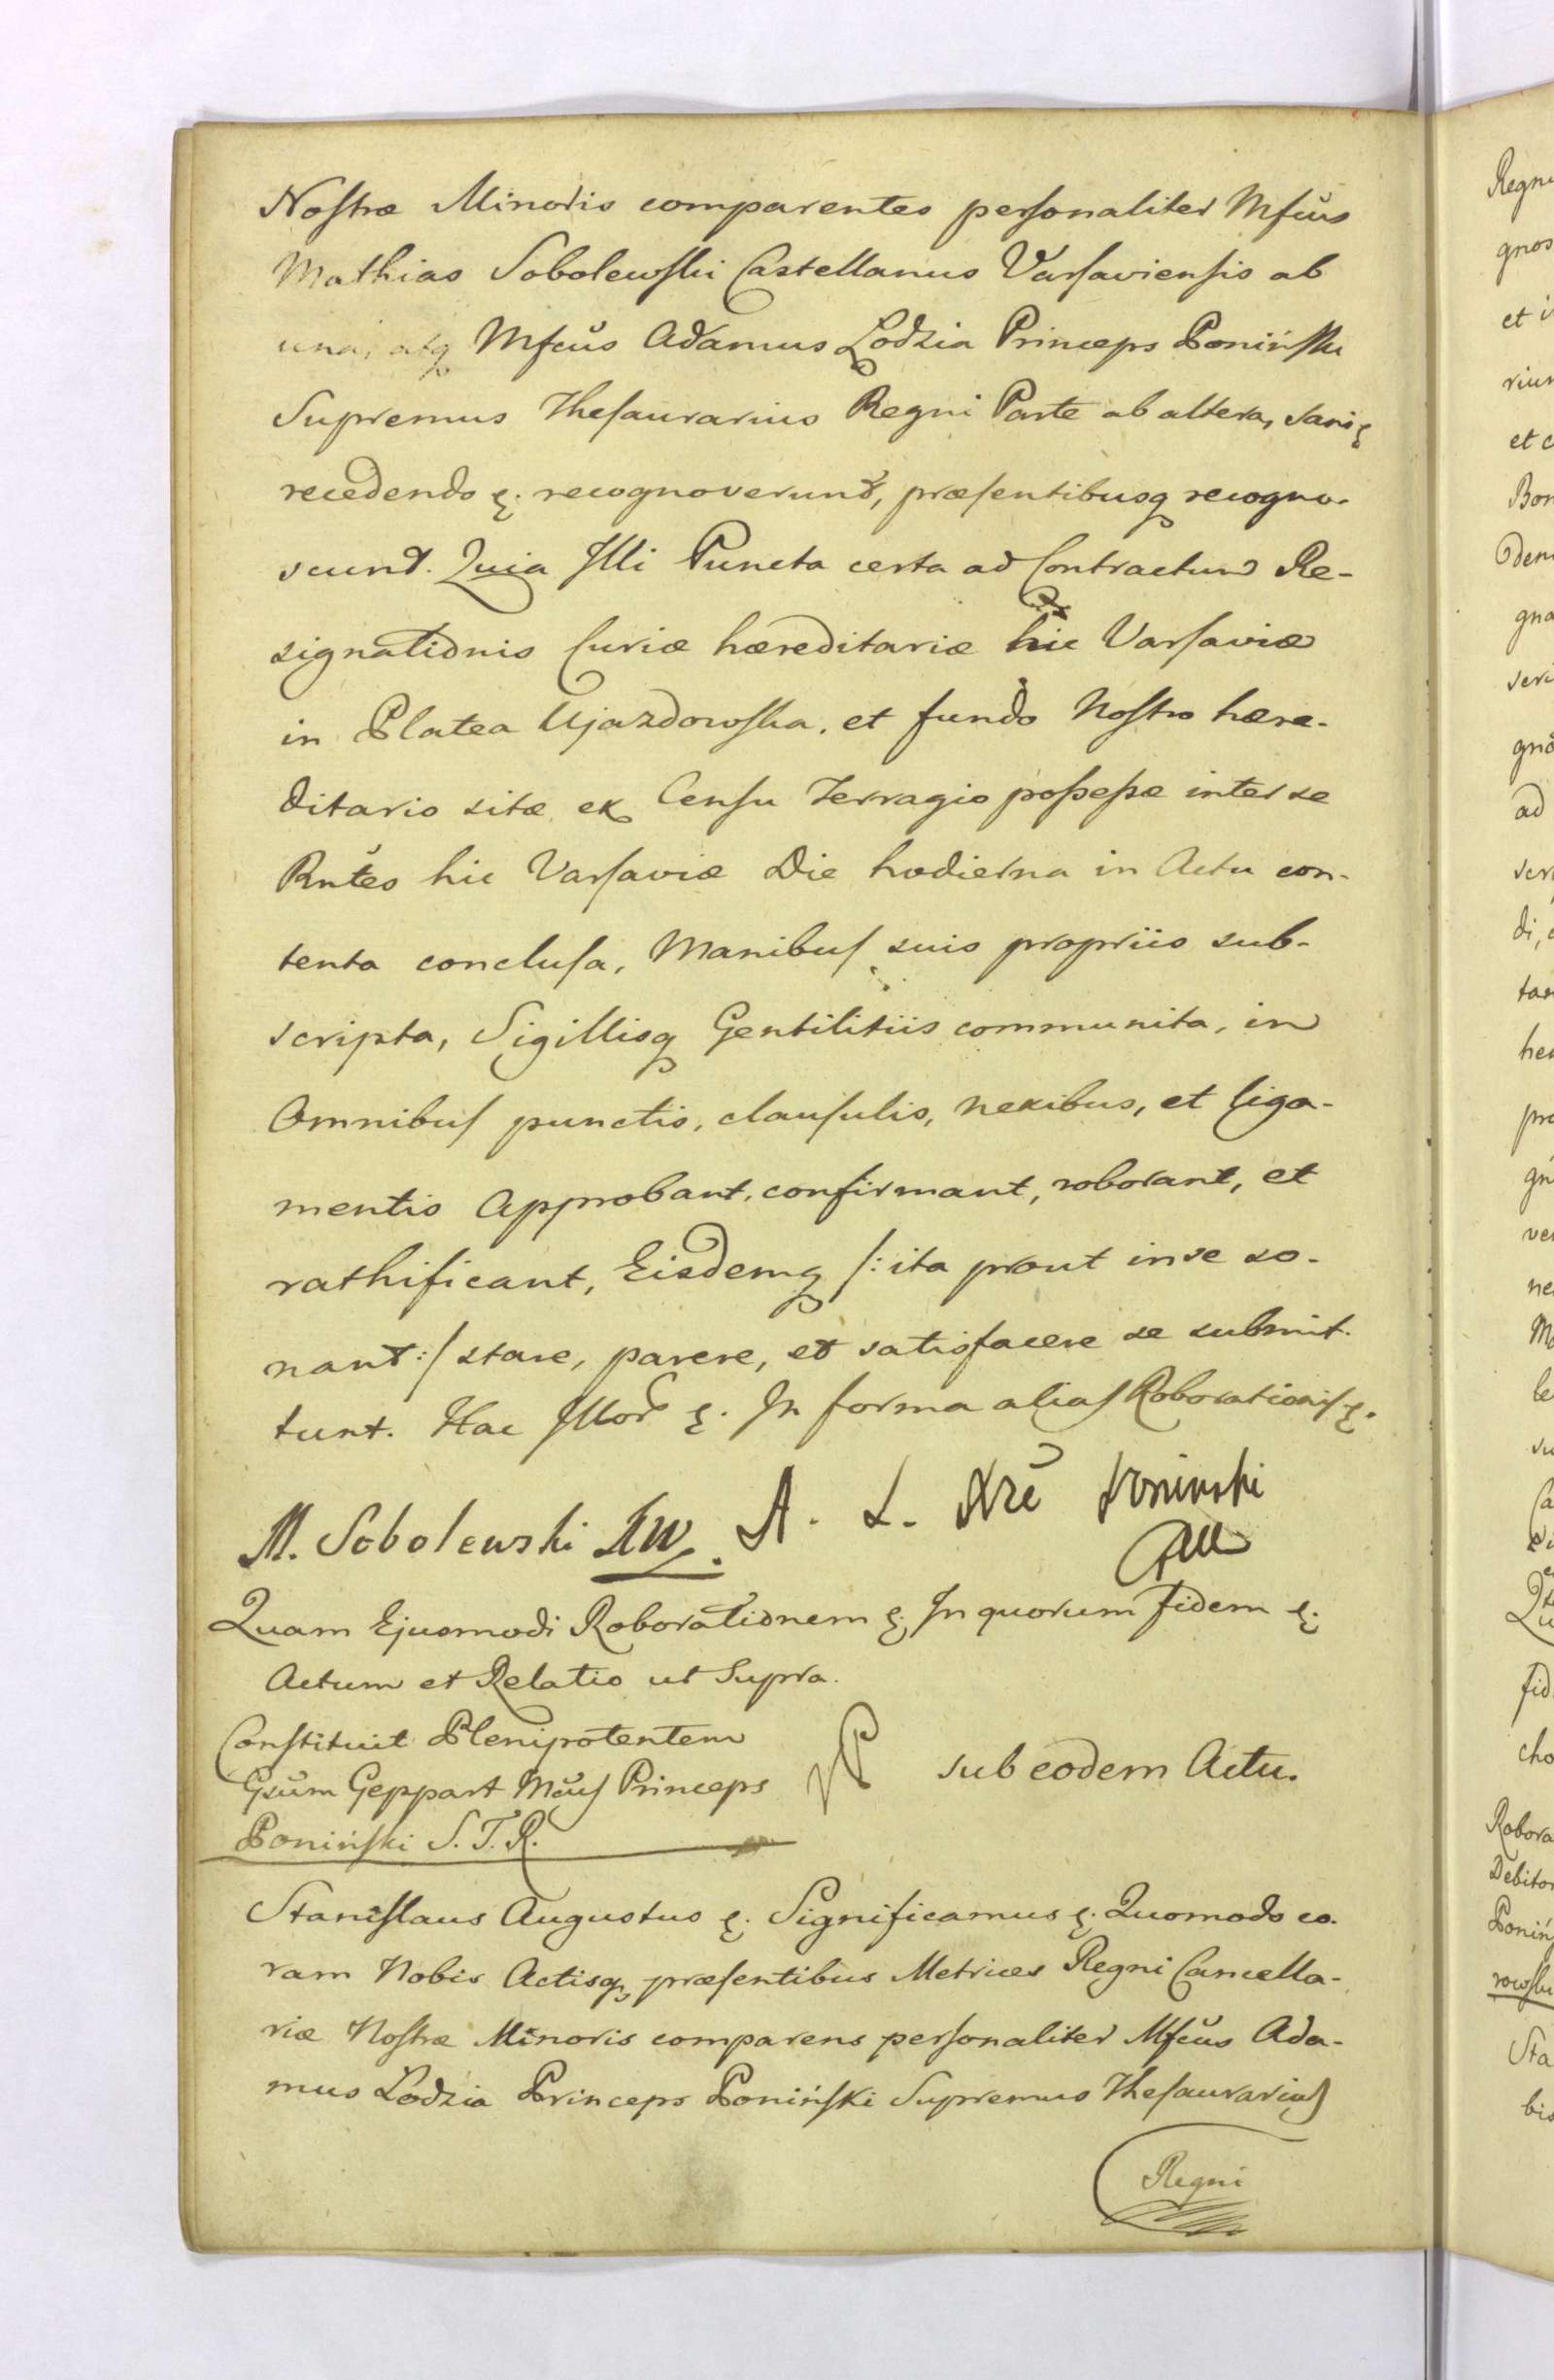 Nostræ Minoris comparentes personaliter Mfcus
Mathias Sobolewski Castellanus Varsaviensis ab
una, atq Mfcus Adamus Lodzia Princeps Poniński
Supremus Thesaurarius Regni Parte ab altera, sani &
recedendo &. recognoverunt, præsentibusq recogno-
scunt. Quia Illi Puncta certa ad Contractum Re-
signationis Curiæ hæreditariæ hic Varsaviæ
in Platea Ujazdowska, et fundo Nostro hære-
ditario sitæ ex Censu Terragio possessæ inter se
Rntes hic Varsaviæ Die hodierna in Actu con-
tenta conclusa, Manibus suis propriis sub-
scripta, Sigillisq Gentilitiis communita, in
Omnibus punctis, clausulis, nexibus, et liga-
mentis approbant, confirmant, roborant, et
rathificant, Eisdemq /: ita prout in se so-
nant :/ stare, parere, et satisfacere se submit-
tunt. Hac Illor &. In forma alias Roborationis &.
M. Sobolewski KW. A. L. Xże Poniński
Quam Ejusmodi Roborationem &. In quorum fidem &.
Actum et Relatio ut Supra.
Constituit Plenipotentem
Gsum Geppart Mcus Princeps
Poniński S. T. R.
sub eodem Actu.
Stanislaus Augustus &. Significamus &. Quomodo co-
ram Nobis Actisq præsentibus Metrices Regni Cancella-
riæ Nostræ Minoris comparens personaliter Mfcus Ada-
mus Lodzia Princeps Poniński Supremus Thesaurarius
Regni